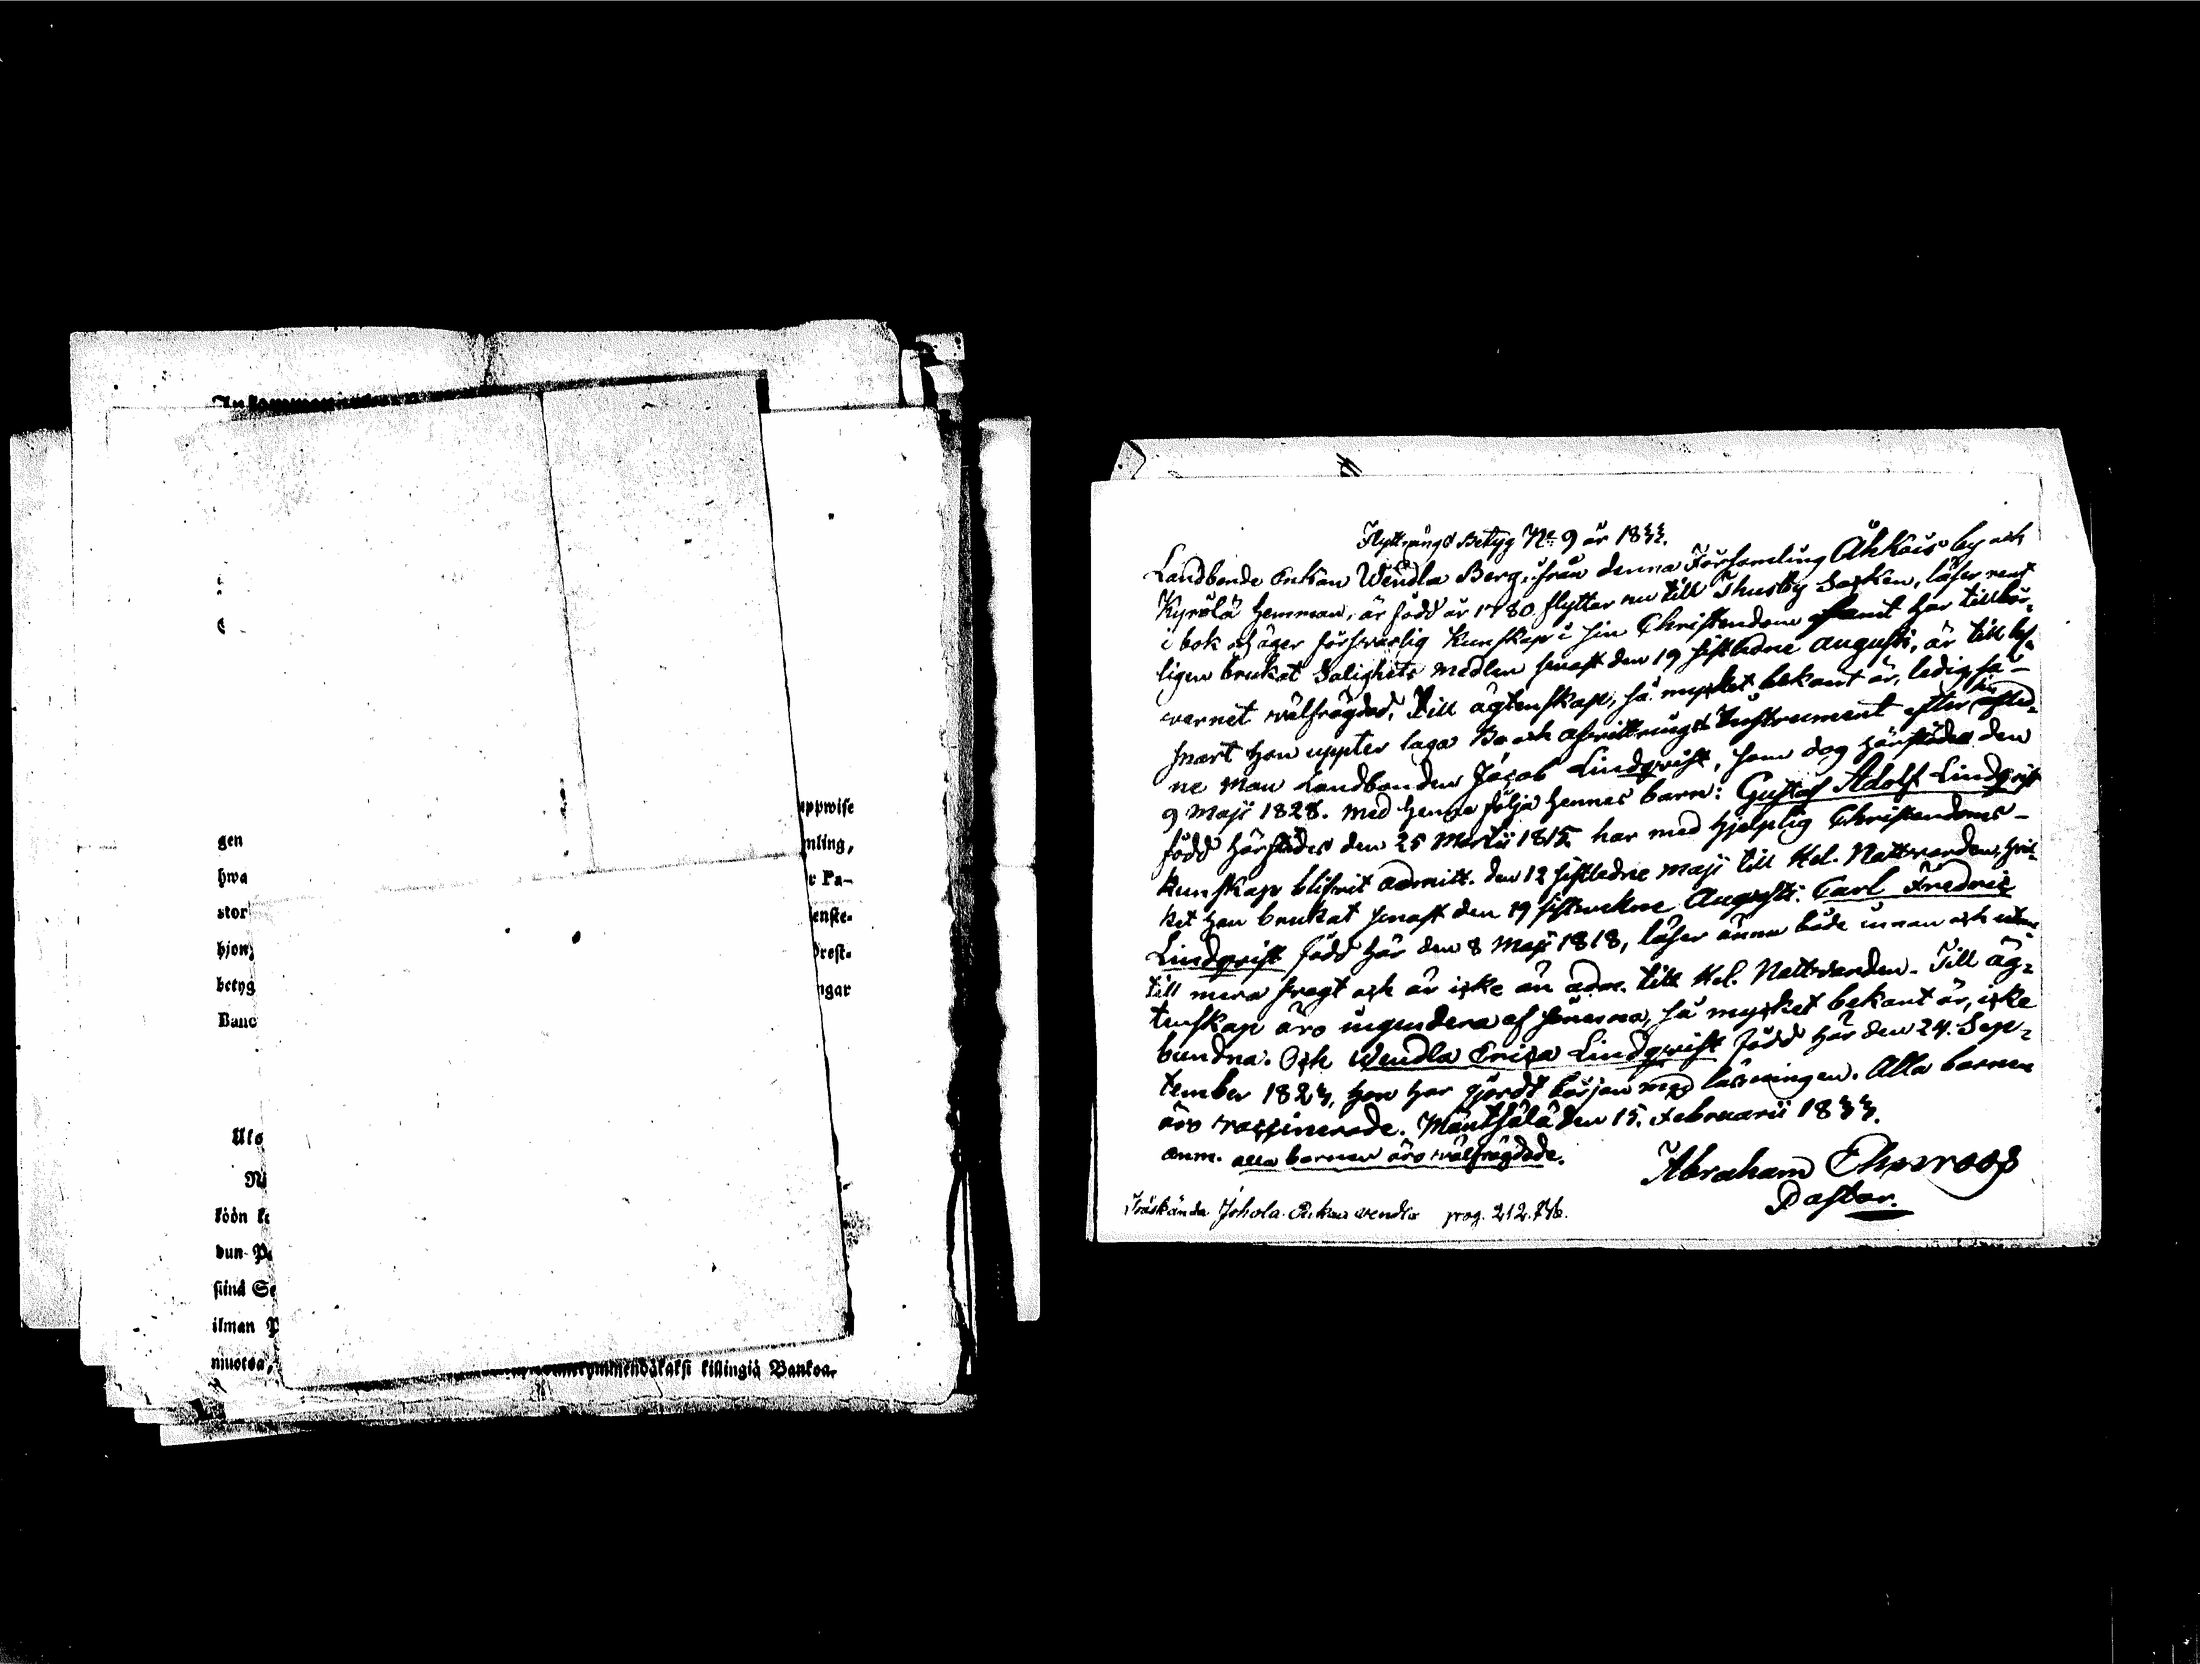 uppwise
gen
mling,
hwa
r Pa-
stor
enste-
hjon
Prest-
betyg
ngar
Banc
Uls
köön
dun-
siinä Se
ilman
muotoa,
killingiä Bankoa.
Flyttnings Betyg No 9 år 1833.
Landbonde Enkan Wendla Berg, ifrån denna Församling Åkkois by och
Kyrölä hemman, är född år 1780. flyttar nu till Thusby Socken, läser rent
i bok och äger försvarlig kunskap i sin Christendom samt har tillbör-
ligen brukat Salighets medlen senast den 19 sistledne Augusti, är till lef-
vernet välfrägdad. Till ägtenskap, så mycket bekant är, ledig, så
snart hon uppter laga Bo och afvittrings Instrument efter sin afled-
ne Man Landbonden Jacob Lindqvist, som dog härstädes den
9 Maji 1828. Med henne följa hennes barn: Gustaf Adolf Lindqvist
född härstädes den 25 Martii 1815. har med hjelplig Christendoms-
kunskap blifvit admitt. den 12 sistledne Maji till Hel. Nattvarden, hvil-
ket han brukat senast den 19 sistvekne Augusti. Carl Fredric
Lindqvist född här den 8 Maji 1818, läser ännu både innan och utan-
till mera svagt och är icke än adm. till Hel. Nattvarden. Till äg-
tenskap äro ingendera af sönerna, så mycket bekant är, icke
bundna. Och Wendla Erica Lindqvist född här den 24. Sep-
tember 1823, hon har gjordt början med läsningen. Alla barnen
äro vaccinerade. Mäntsälä den 15. Februarii 1833.
anm. alla barnen äro välfrägdade.
Abraham
Pastor.
Träskända Johola Enkan Wendla pag. 212.